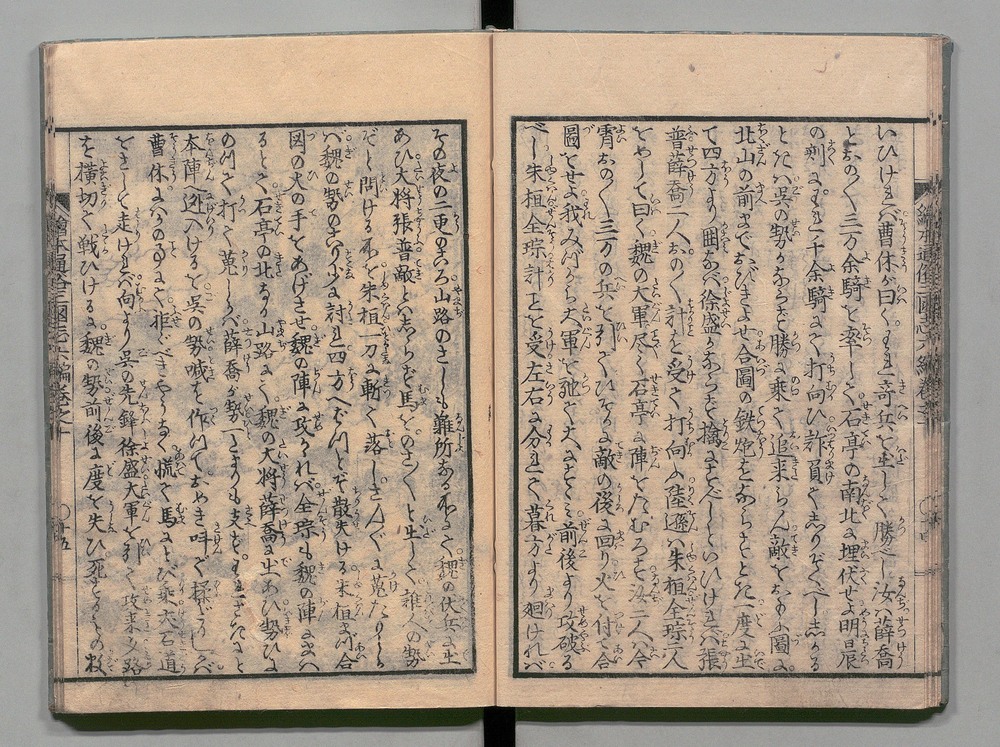 いひければ曹休が曰く。われ奇兵を出して勝べし汝ハ薛喬
とおの〱三万余騎を率して石亭の南北に埋伏せよ明日辰
の刻にわれ千余騎にて打向ひ詐負てしりぞくべししかる
ときハ呉の勢かならず勝に乗て追来らん敵をおもふ圖に
北山の前までおびきよせ合圖の鉄炮をならすとき一度に出
て四方より囲なバ徐盛かならず擒にすべしといひければ張
普薛喬二人おの〱計を受て打向ふ陸遜ハ朱桓全琮二人
をめして曰く魏の大軍尽く石亭に陣をたむろす汝二人今
霄おの〱三万の兵を引てひそかに敵の後に回り火を付て合
圖をせよ我みづから大軍を率て大にすゝミ前後より攻破る
べし朱桓全琮計ごとを受左右に分れて暮方より廻ければ
その夜の二更のころ山路のさしも難所なる所にて魏の伏兵に出
あひ大将張普敵としらず馬をのさ〱と出して誰人の勢
ぞと問ける所を朱桓一刀に斬て落しさん〲に蒐たりけれ
バ魏の勢のこり少に討れ四方へぱつとぞ散失ける朱桓が合
図の火の手をあげさせ魏の陣に攻かゝれバ全琮も魏の陣にはい
るとて石亭の北なる山路にて魏の大将薛喬に出あひ勢ひよ
のつて打て蒐しかバ薛喬が勢一とまりも支ず。われさきにと
本陣へ迯入けるを呉の勢喊を作ッておめき叫て揉だりしかバ
曹休ハあまりのことに拒ぐべきやうなく慌て馬にとび乗夾石道
をさして走ければ向より呉の先鋒徐盛大軍を引て攻来り路
を横切て戦ひけるに魏の勢前後に度を失ひ死するもの数
繪本通俗三國志六編巻之十